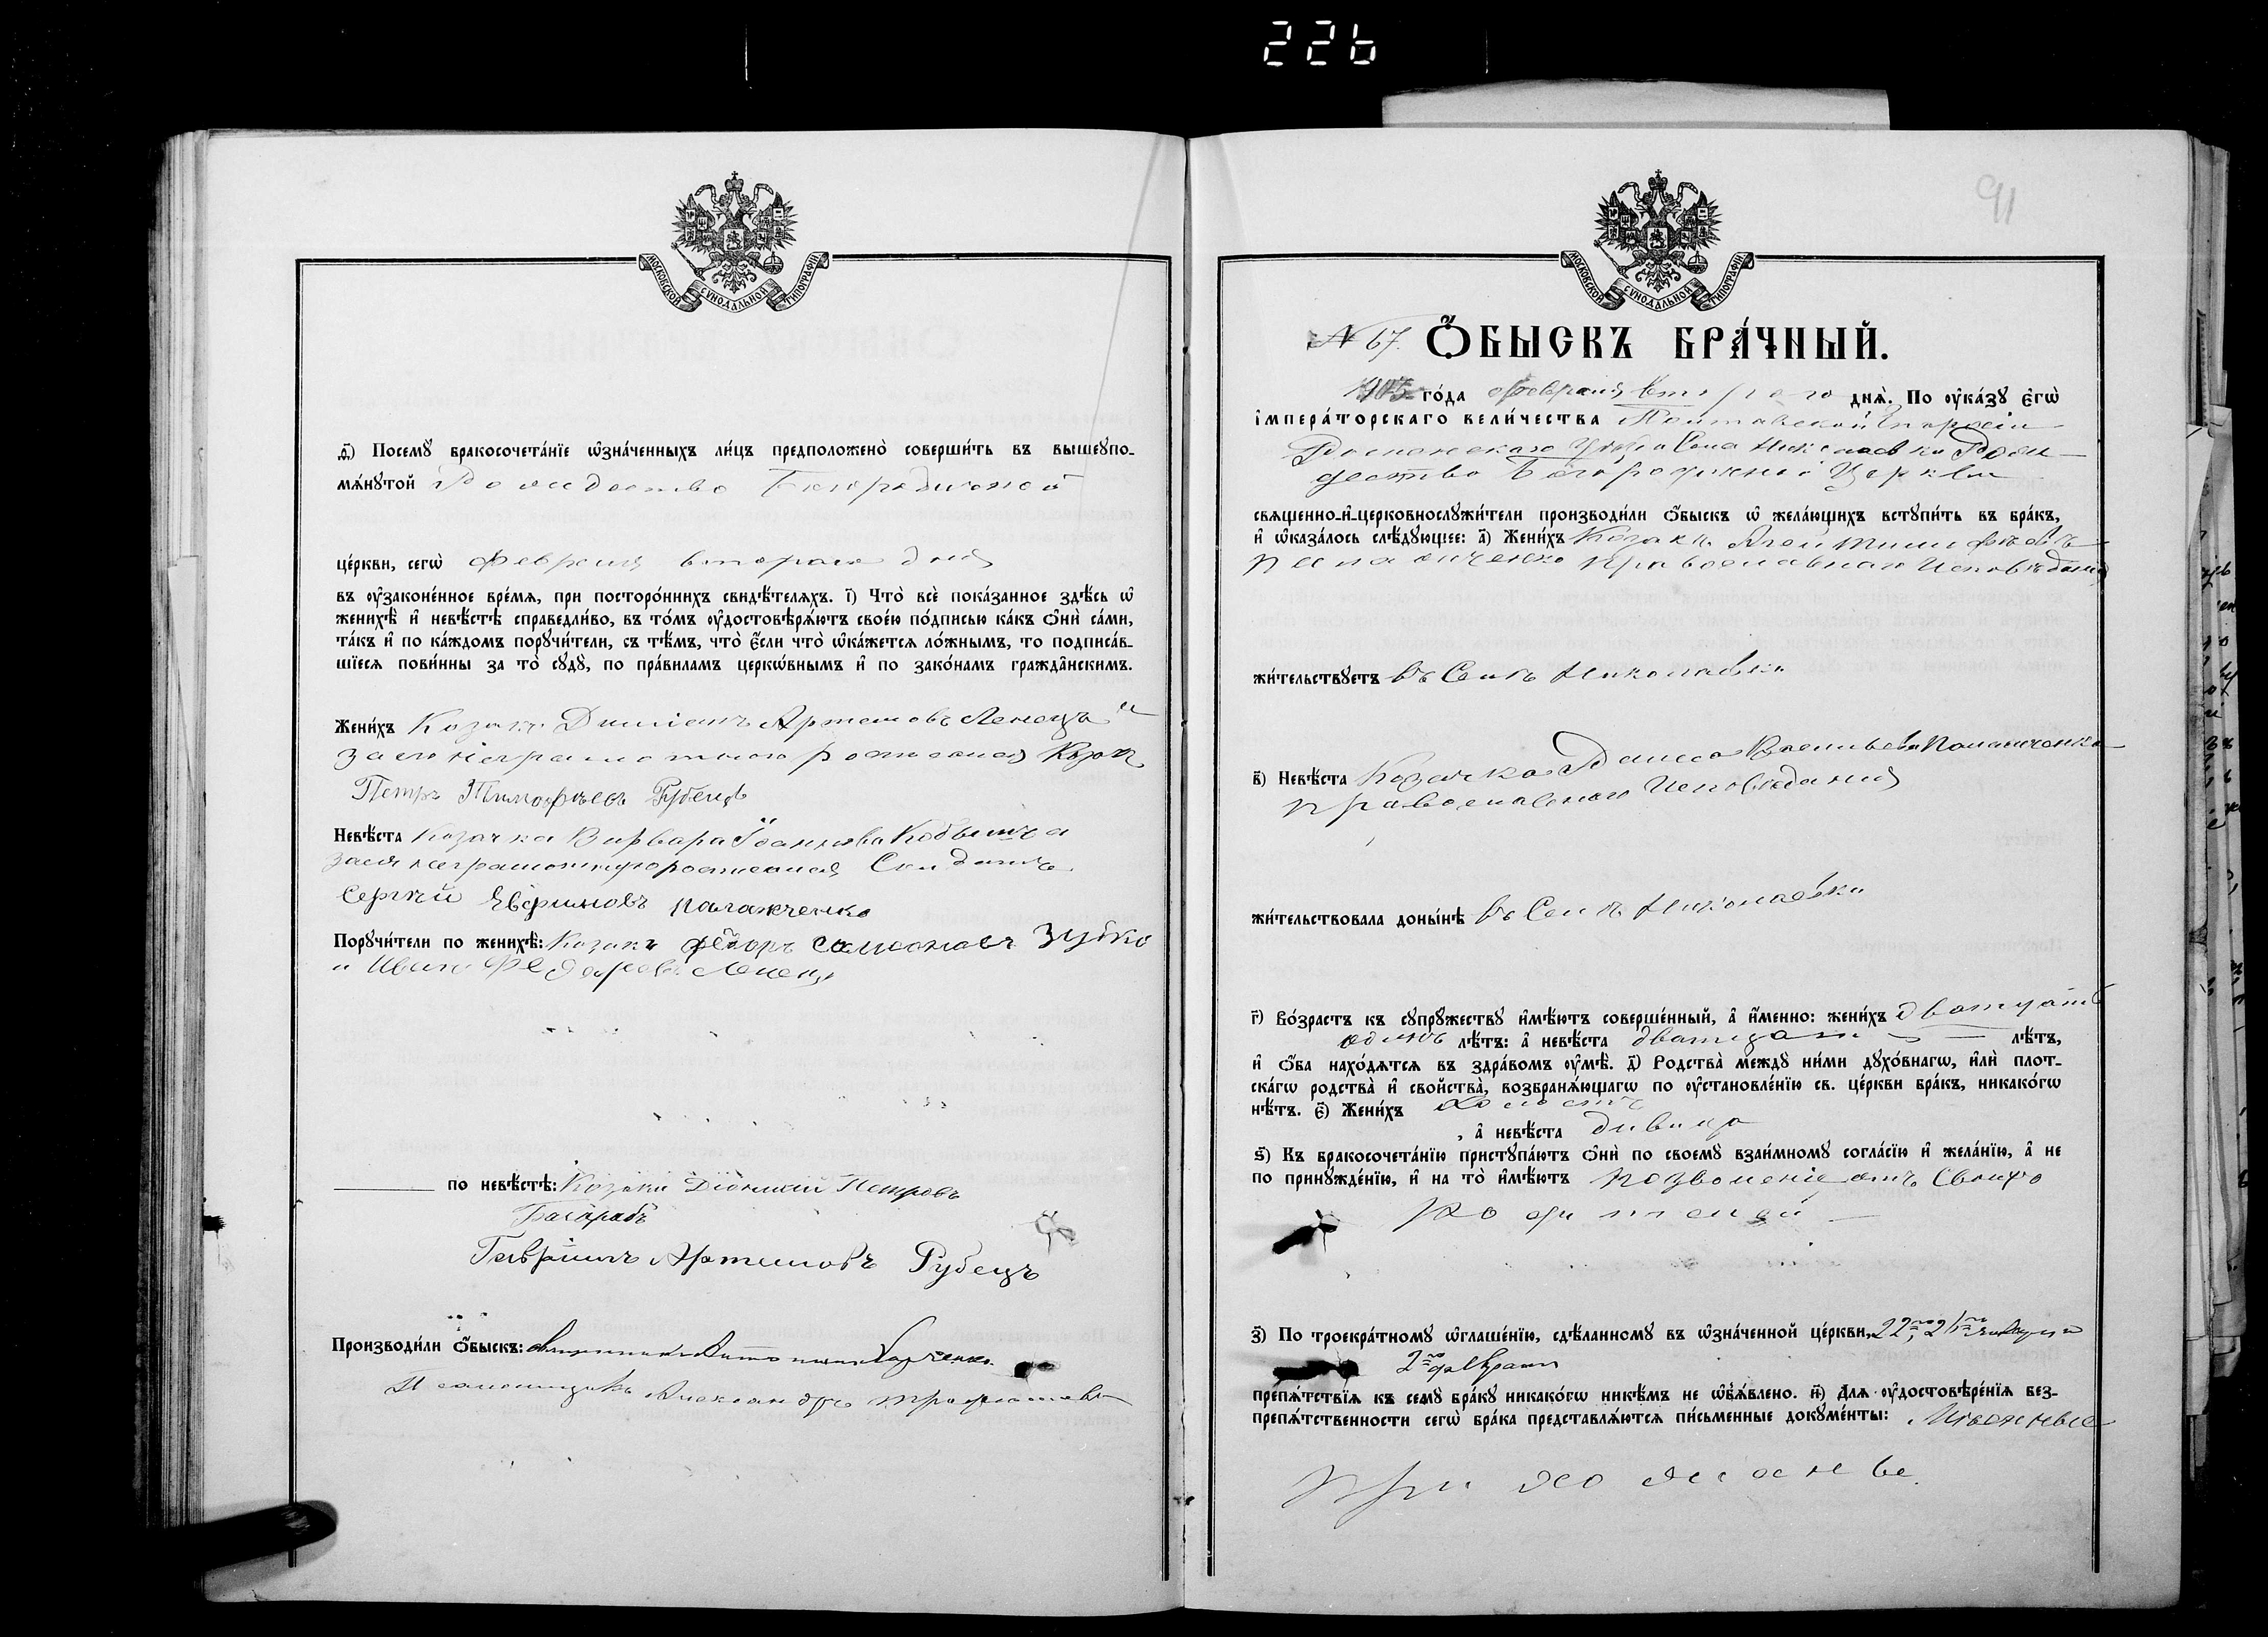 226
МОСКОВСКОЙ СУНОДАЛЬНОЙ ТИПОГРАФІИ
д҃і) Посемꙋ бракосочета́нїе ѡ҆зна́ченныхъ ли́цъ предположено̀ соверши́ть въ вышеꙋпо-
мѧ́нꙋтой Рождество Богородичной
це́ркви, сегѡ̀ февраля втораго дня
въ ᲂу҆законе́нное вре́мѧ, при посторо́ннихъ свидѣ́телѧхъ. і҃) Что̀ всѐ пока́занное здѣ́сь ѡ҆
женихѣ̀ и҆ невѣ́стѣ справедли́во, въ то́мъ ᲂу҆достовѣрѧ́ютъ свое́ю по́дписью ка́къ ѻ҆нѝ са́ми,
та́къ и҆ по ка́ждомъ порꙋчи́тели, съ тѣ́мъ, что̀ є҆́сли что̀ ѡ҆ка́жетсѧ ло́жнымъ, то подписа́в-
шїесѧ пови́нны за то̀ сꙋдꙋ̀, по пра́виламъ церкѡ́внымъ и҆ по зако́намъ гражда̂нскимъ.
Жени́хъ Козакъ Артемовъ Ленецъ а
за его неграмотного росписался Козак
Петръ Тимофѣевъ Рубецъ
Невѣ́ста Козачка Варвара Іоаннова
заея неграмотную росписался Солдатъ
Сергѣй Палажченко
Порꙋчи́тели по женихѣ̀: Козакъ Федоръ Самсоновъ Зубко
и Иванъ Федоровъ Ленецъ
по невѣ́стѣ: Козаки Діонисій Петровъ
Гавріилъ Артемовъ Рубецъ
Производи́ли ѻ҆́быскъ: священникъ
И псаломщикъ Александръ
91
МОСКОВСКОЙ СУНОДАЛЬНОЙ ТИПОГРАФІИ
№ 67. Ѻ҆́БЫСКЪ БРА́ЧНЫЙ.
1905 го́да февраля второго днѧ̀. По ᲂу҆ка́зꙋ є҆гѡ̀
і҆мпера́торскаго вели́чества Полтавской Епархіи
Роменскаго уѣзда Села Николаевки Рож-
дество Богородичной Церкви
свѧщенно-и҆-церковнослꙋжи́тели производи́ли ѻ҆́быскъ ѡ҆ жела́ющихъ встꙋпи́ть въ бра́къ,
и҆ ѡ҆каза́лось слѣ́дꙋющее: а҃) Жени́хъ Козакъ Тимофѣевъ
православнаго Исповѣданія
жи́тельствꙋетъ въ Селѣ Николаевки
в҃) Невѣ́ста Козачка Васильева
православнаго Исповѣданія
жи́тельствовала доны́нѣ въ Селѣ Николаевки
г҃) Во́зрастъ къ сꙋпрꙋ́жествꙋ и҆мѣ́ютъ соверше́нный, а҆ и҆́менно: жени́хъ дватцать
одинъ лѣ́тъ: а҆ невѣ́ста дватцать лѣ́тъ,
и҆ ѻ҆́ба нахо́дѧтсѧ въ здра́вомъ ᲂу҆мѣ̀. д҃) Родства̀ междꙋ̀ ни́ми дꙋхо́внагѡ, и҆лѝ плот-
ска́гѡ родства̀ и҆ сво́йства̀, возбранѧ́ющагѡ по ᲂу҆становле́нїю св. це́ркви бра́къ, никако́гѡ
нѣ́тъ. є҃) Жени́хъ холостъ
, а҆ невѣ́ста дивица
ѕ҃) Къ бракосочета́нїю пристꙋпа́ютъ ѻ҆нѝ по своемꙋ̀ взаи́мномꙋ согла́сїю и҆ жела́нїю, а҆ не
по принꙋжде́нїю, и҆ на то̀ и҆мѣ́ютъ позволеніе отъ Своихъ
Родителей
з҃) По троекра́тномꙋ ѡ҆глаше́нїю, сдѣ́ланномꙋ въ ѡ҆зна́ченной це́ркви, 22го,
2го февраля
препѧ́тствїѧ къ семꙋ̀ бра́кꙋ никако́гѡ никѣ́мъ не ѡ҆б̾ѧ́влено. и҃) Длѧ ᲂу҆достовѣре́нїѧ без-
препѧ́тственности сегѡ̀ бра́ка представлѧ́ютсѧ пи́сьменные докꙋме́нты:
прихожане